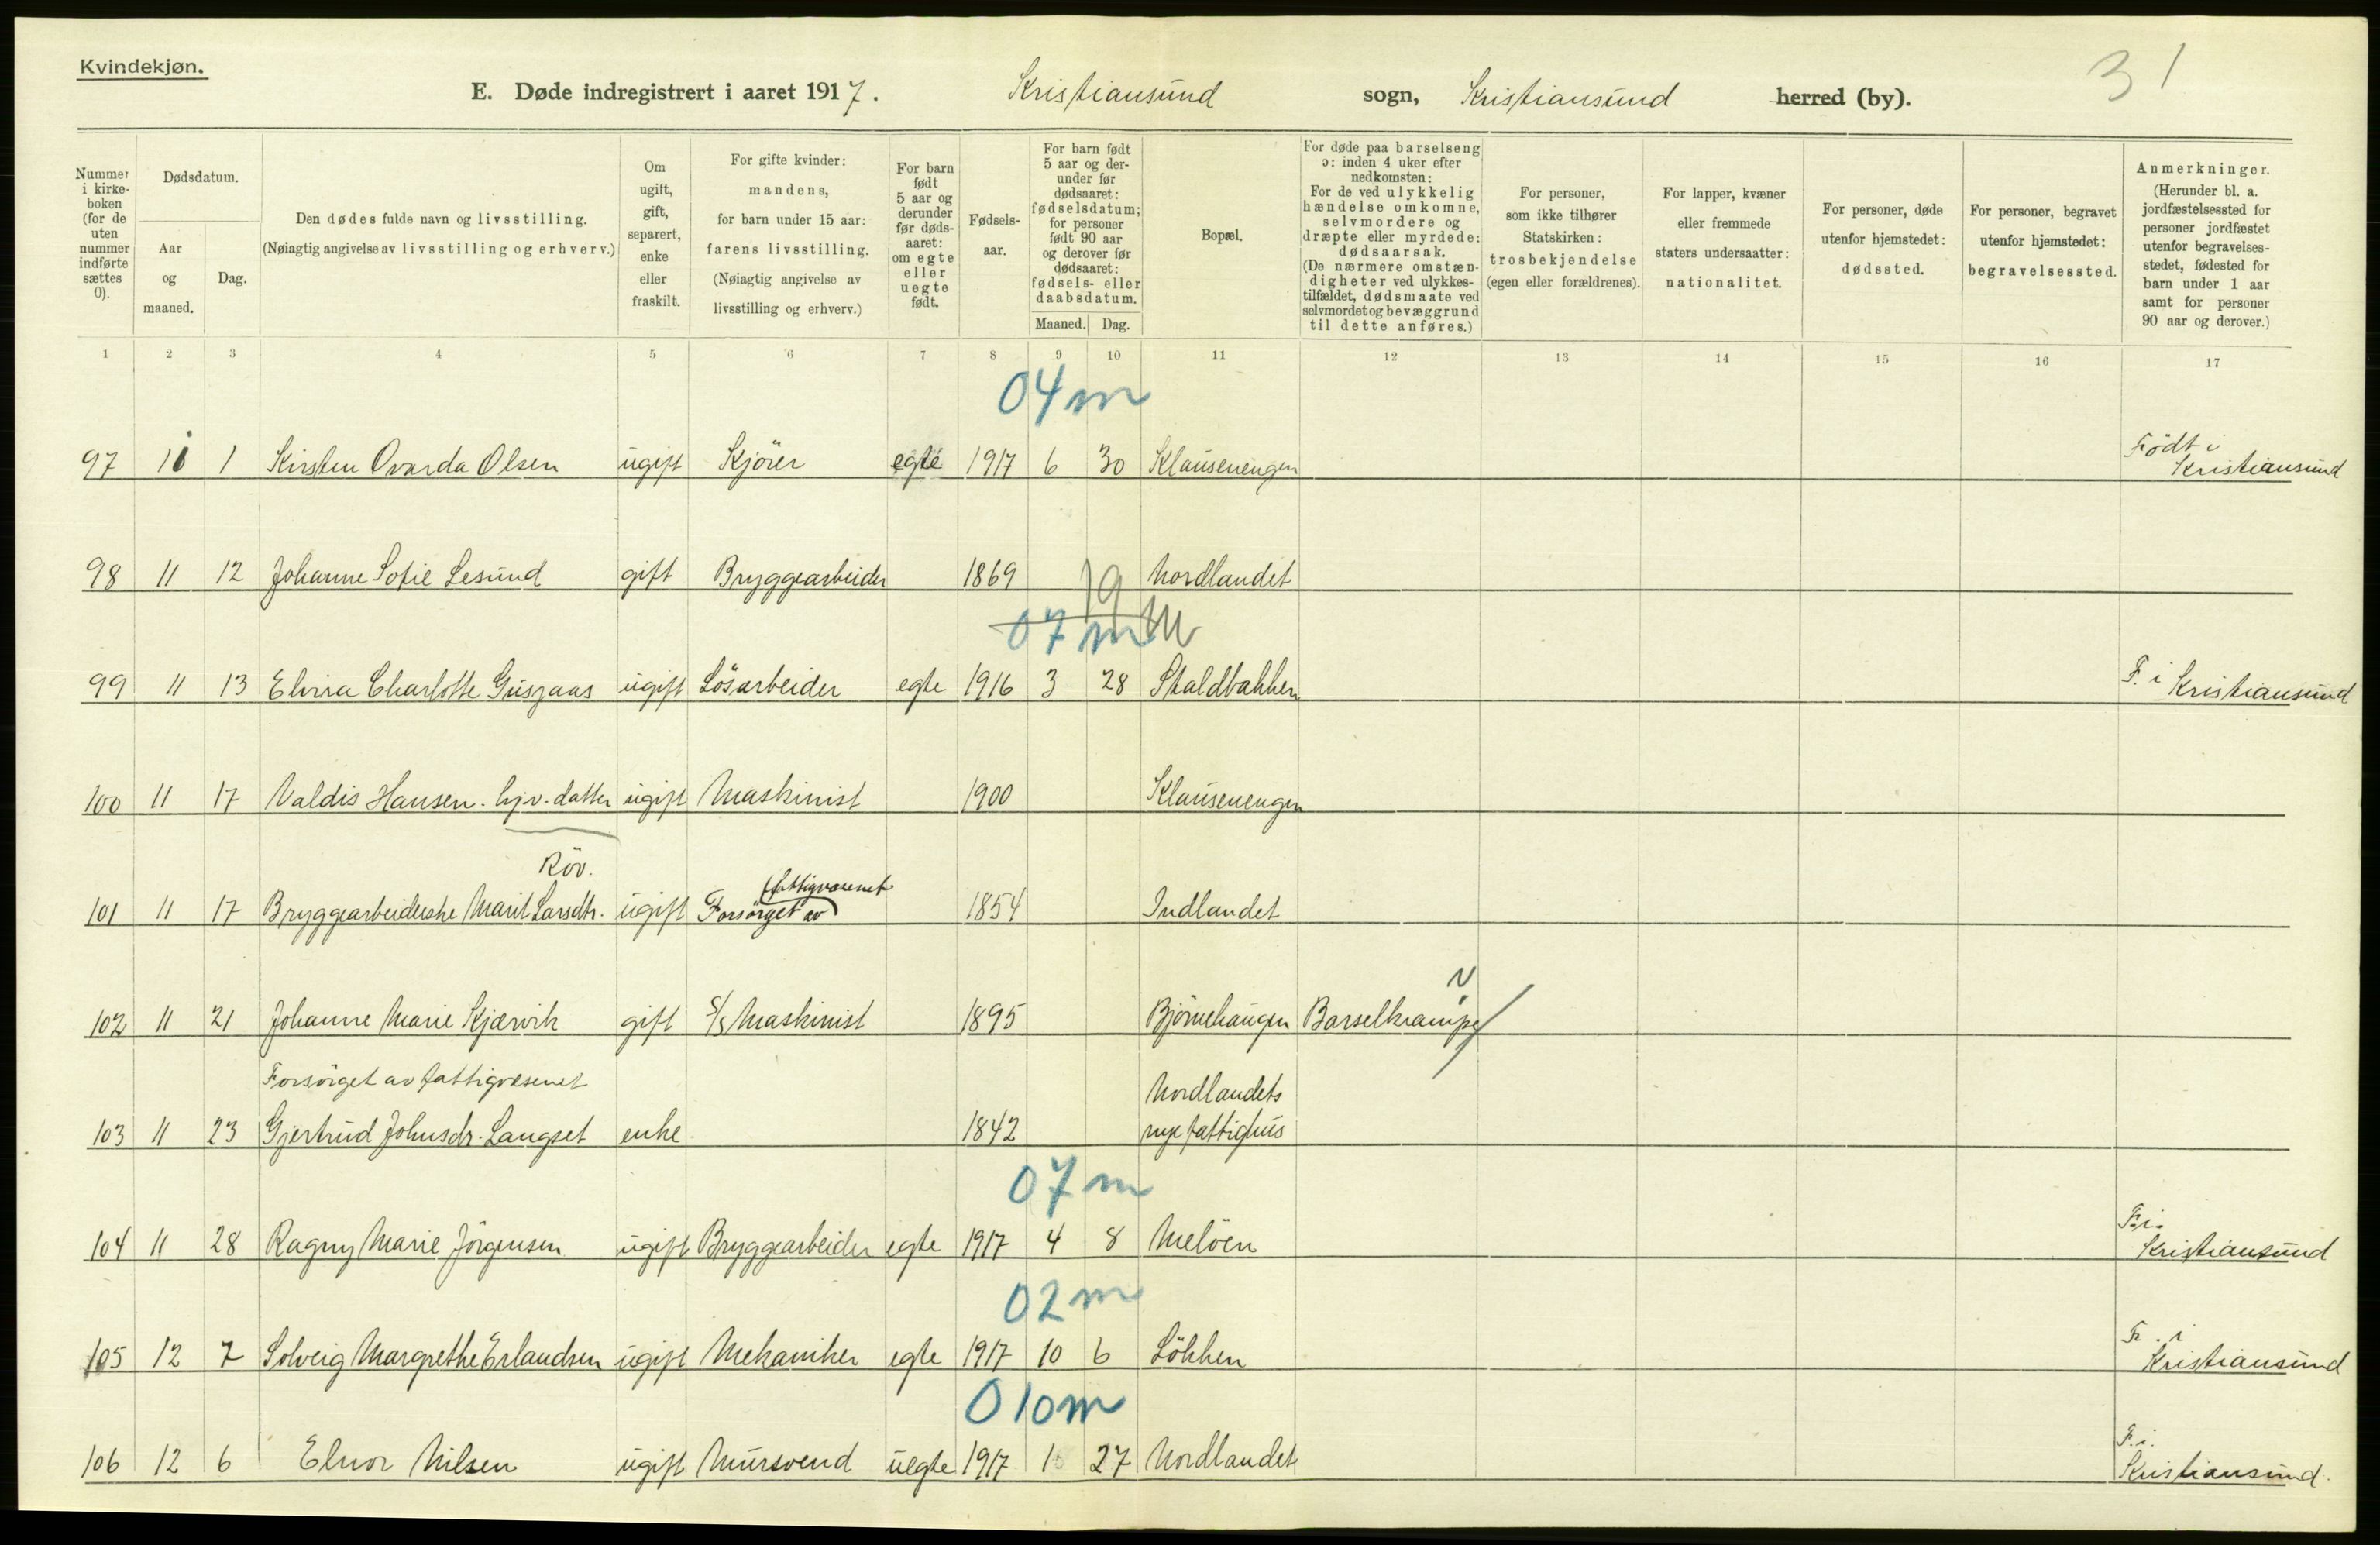 Kvindekjøn.
31
E. Døde indregistrert i aaret 1917. Kristiansund sogn, Kristiansund herred (by).
Nummer i kirkeboken (for de uten nummer indførte sættes 0).
Dødsdatum.
Aar og maaned.
Dag.
Den dødes fulde navn og livsstilling.
(Nøiagtig angivelse av livsstilling og erhverv.)
Om ugift, gift, separert, enke eller fraskilt.
For gifte kvinder: mandens, for barn under 15 aar: farens livsstilling.
(Nøiagtig angivelse av livsstilling og erhverv.)
For barn født 5 aar og derunder før dødsaaret: om egte eller uegte født.
Fødselsaar.
For barn født 5 aar og derunder før dødsaaret: fødselsdatum; for personer født 90 aar og derover før dødsaaret: fødsels- eller daabsdatum.
Maaned. Dag.
Bopæl.
For døde paa barselseng ɔ: inden 4 uker efter nedkomsten:
For de ved ulykkelig hændelse omkomne, selvmordere og dræpte eller myrdede: dødsaarsak.
(De nærmere omstændigheter ved ulykkestilfældet, dødsmaate ved selvmordet og bevæggrund til dette anføres.)
For personer, som ikke tilhører Statskirken: trosbekjendelse (egen eller forældrenes).
For lapper, kvæner eller fremmede staters undersaatter: nationalitet.
For personer, døde utenfor hjemstedet: dødssted.
For personer, begravet utenfor hjemstedet: begravelsessted.
Anmerkninger.
(Herunder bl. a. jordfæstelsessted for personer jordfæstet utenfor begravelsesstedet, fødested for barn under 1 aar samt for personer 90 aar og derover.)
1 2 3 4 5 6 7 8 9 10 11 12 13 14 15 16 17
04m
97 11 1 Kirsten Ovarda Olsen ugift Kjörer egte 1917 6 30 Klausenengen Födt i Kristiansund
98 11 12 Johanne Sofie Lesund gift Bryggearbeider 1869 Nordlandet
07m
99 11 13 Elvira Charlotte Gusgaas ugift Lösarbeider egte 1916 3 28 Staldbakken F. i Kristiansund
100 11 17 Valdis Hansen. hjv. datter ugift Maskinist 1900 Klausenengen
Röv.
101 11 17 Bryggearbeiderske Marit Larsdtr. ugift Forsörget av fattigvæsenet 1854 Indlandet
102 11 21 Johanne Marie Kjærvik gift S/S Maskinist 1895 Björnehaugen Barselkrampe
Forsörget av fattigvæsenet Nordlandets
103 11 23 Gjertrud Johnsdr. Langset enke 1842 nye fattighus
07m
104 11 28 Ragny Marie Jörgensen ugift Bryggearbeider egte 1917 4 8 Melöen F. i. Kristiansund
02m
105 12 7 Solveig Margrethe Erlandsen ugift Mekaniker egte 1917 10 6 Lökken F. i Kristiansund
010m
106 12 6 Elnor Nilsen ugift Mursvend uegte 1917 1 27 Nordlandet F. i. Kristiansund.